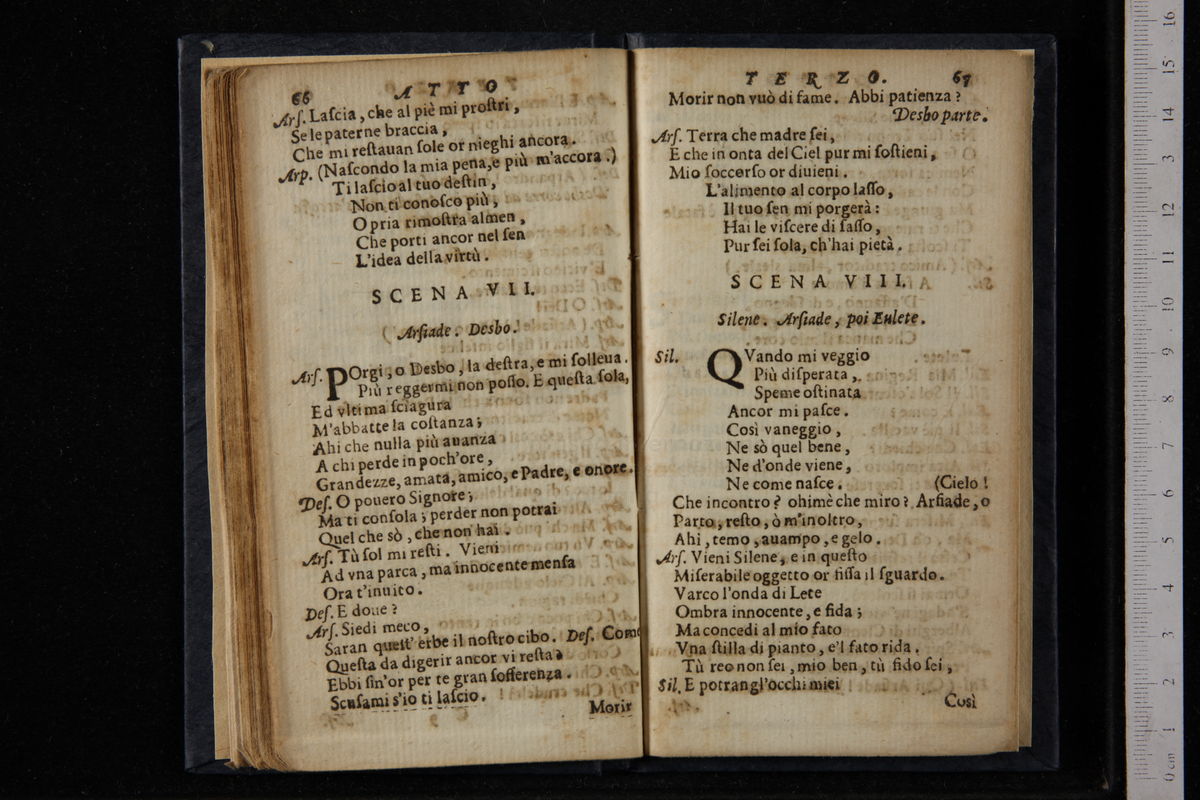 66 ATTO
Arſ. Laſcia, che al piè mi proſtri,
Se le paterne braccia,
Che mi reſtauan ſole or nieghi ancora.
Arp. (Naſcondo la mia pena, e più m'accora.)
Ti laſcio al tuo deſtin,
Non ti conoſco più,
O pria rimoſtra almen,
Che porti ancor nel ſen
L'idea della virtù.
SCENA VII.
Arſiade. Desbo.
Arſ. POrgi, o Desbo, la deſtra, e mi ſolleua.
Più reggermi non poſſo. E queſta ſola,
Ed vltima ſciagura
M'abbatte la coſtanza;
Ahi che nulla più auanza
A chi perde in poch'ore,
Grandezze, amata, amico, e Padre, e onore.
Deſ. O pouero Signore;
Ma ti conſola; perder non potrai
Quel che sò, che non hai.
Arſ. Tù ſol mi reſti. Vieni
Ad vna parca, ma innocente menſa
Ora t'inuito.
Deſ. E doue?
Arſ. Siedi meco,
Saran queſt' erbe il noſtro cibo. Deſ. Come
Queſta da digerir ancor vi reſta?
Ebbi ſin'or per te gran ſofferenza.
Scuſami s'io ti laſcio.
Morir
TERZO. 67
Morir non vuò di fame. Abbi patienza?
Desbo parte.
Arſ. Terra che madre ſei,
E che in onta del Ciel pur mi ſoſtieni,
Mio ſoccorſo or diuieni.
L'alimento al corpo laſſo,
Il tuo ſen mi porgerà:
Hai le viſcere di ſaſſo,
Pur ſei ſola, ch'hai pietà.
SCENA VIII.
Silene. Arſiade, poi Eulete.
Sil. QVando mi veggio
Più diſperata,
Speme oſtinata
Ancor mi paſce.
Così vaneggio,
Ne sò quel bene,
Ne d'onde viene,
Ne come naſce. (Cielo!
Che incontro? ohimè che miro? Arſiade, o
Parto, reſto, ò m'inoltro,
Ahi, temo, auampo, e gelo.
Arſ. Vieni Silene, e in queſto
Miſerabile oggetto or fiſſa il ſguardo.
Varco l'onda di Lete
Ombra innocente, e fida;
Ma concedi al mio fato
Vna ſtilla di pianto, e'l fato rida.
Tù reo non ſei, mio ben, tù fido ſei,
Sil. E potran gl'occhi miei
Così